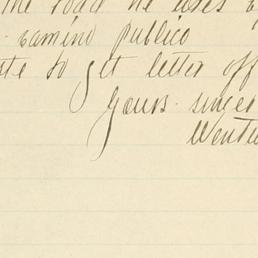 the road he uses
camino publico
to get letter off
Yours sincer
Wentw